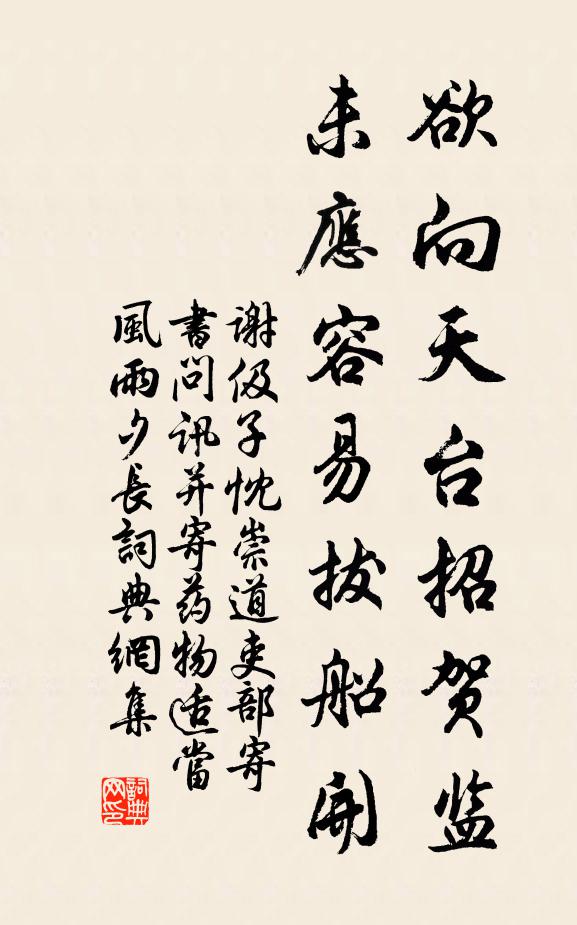 欲向天台招贺监
未應容易拔船開
谢伋子忱崇道吏部寄
書問訊并寄药物适當
風雨夕長詞典網集
詞典
网印